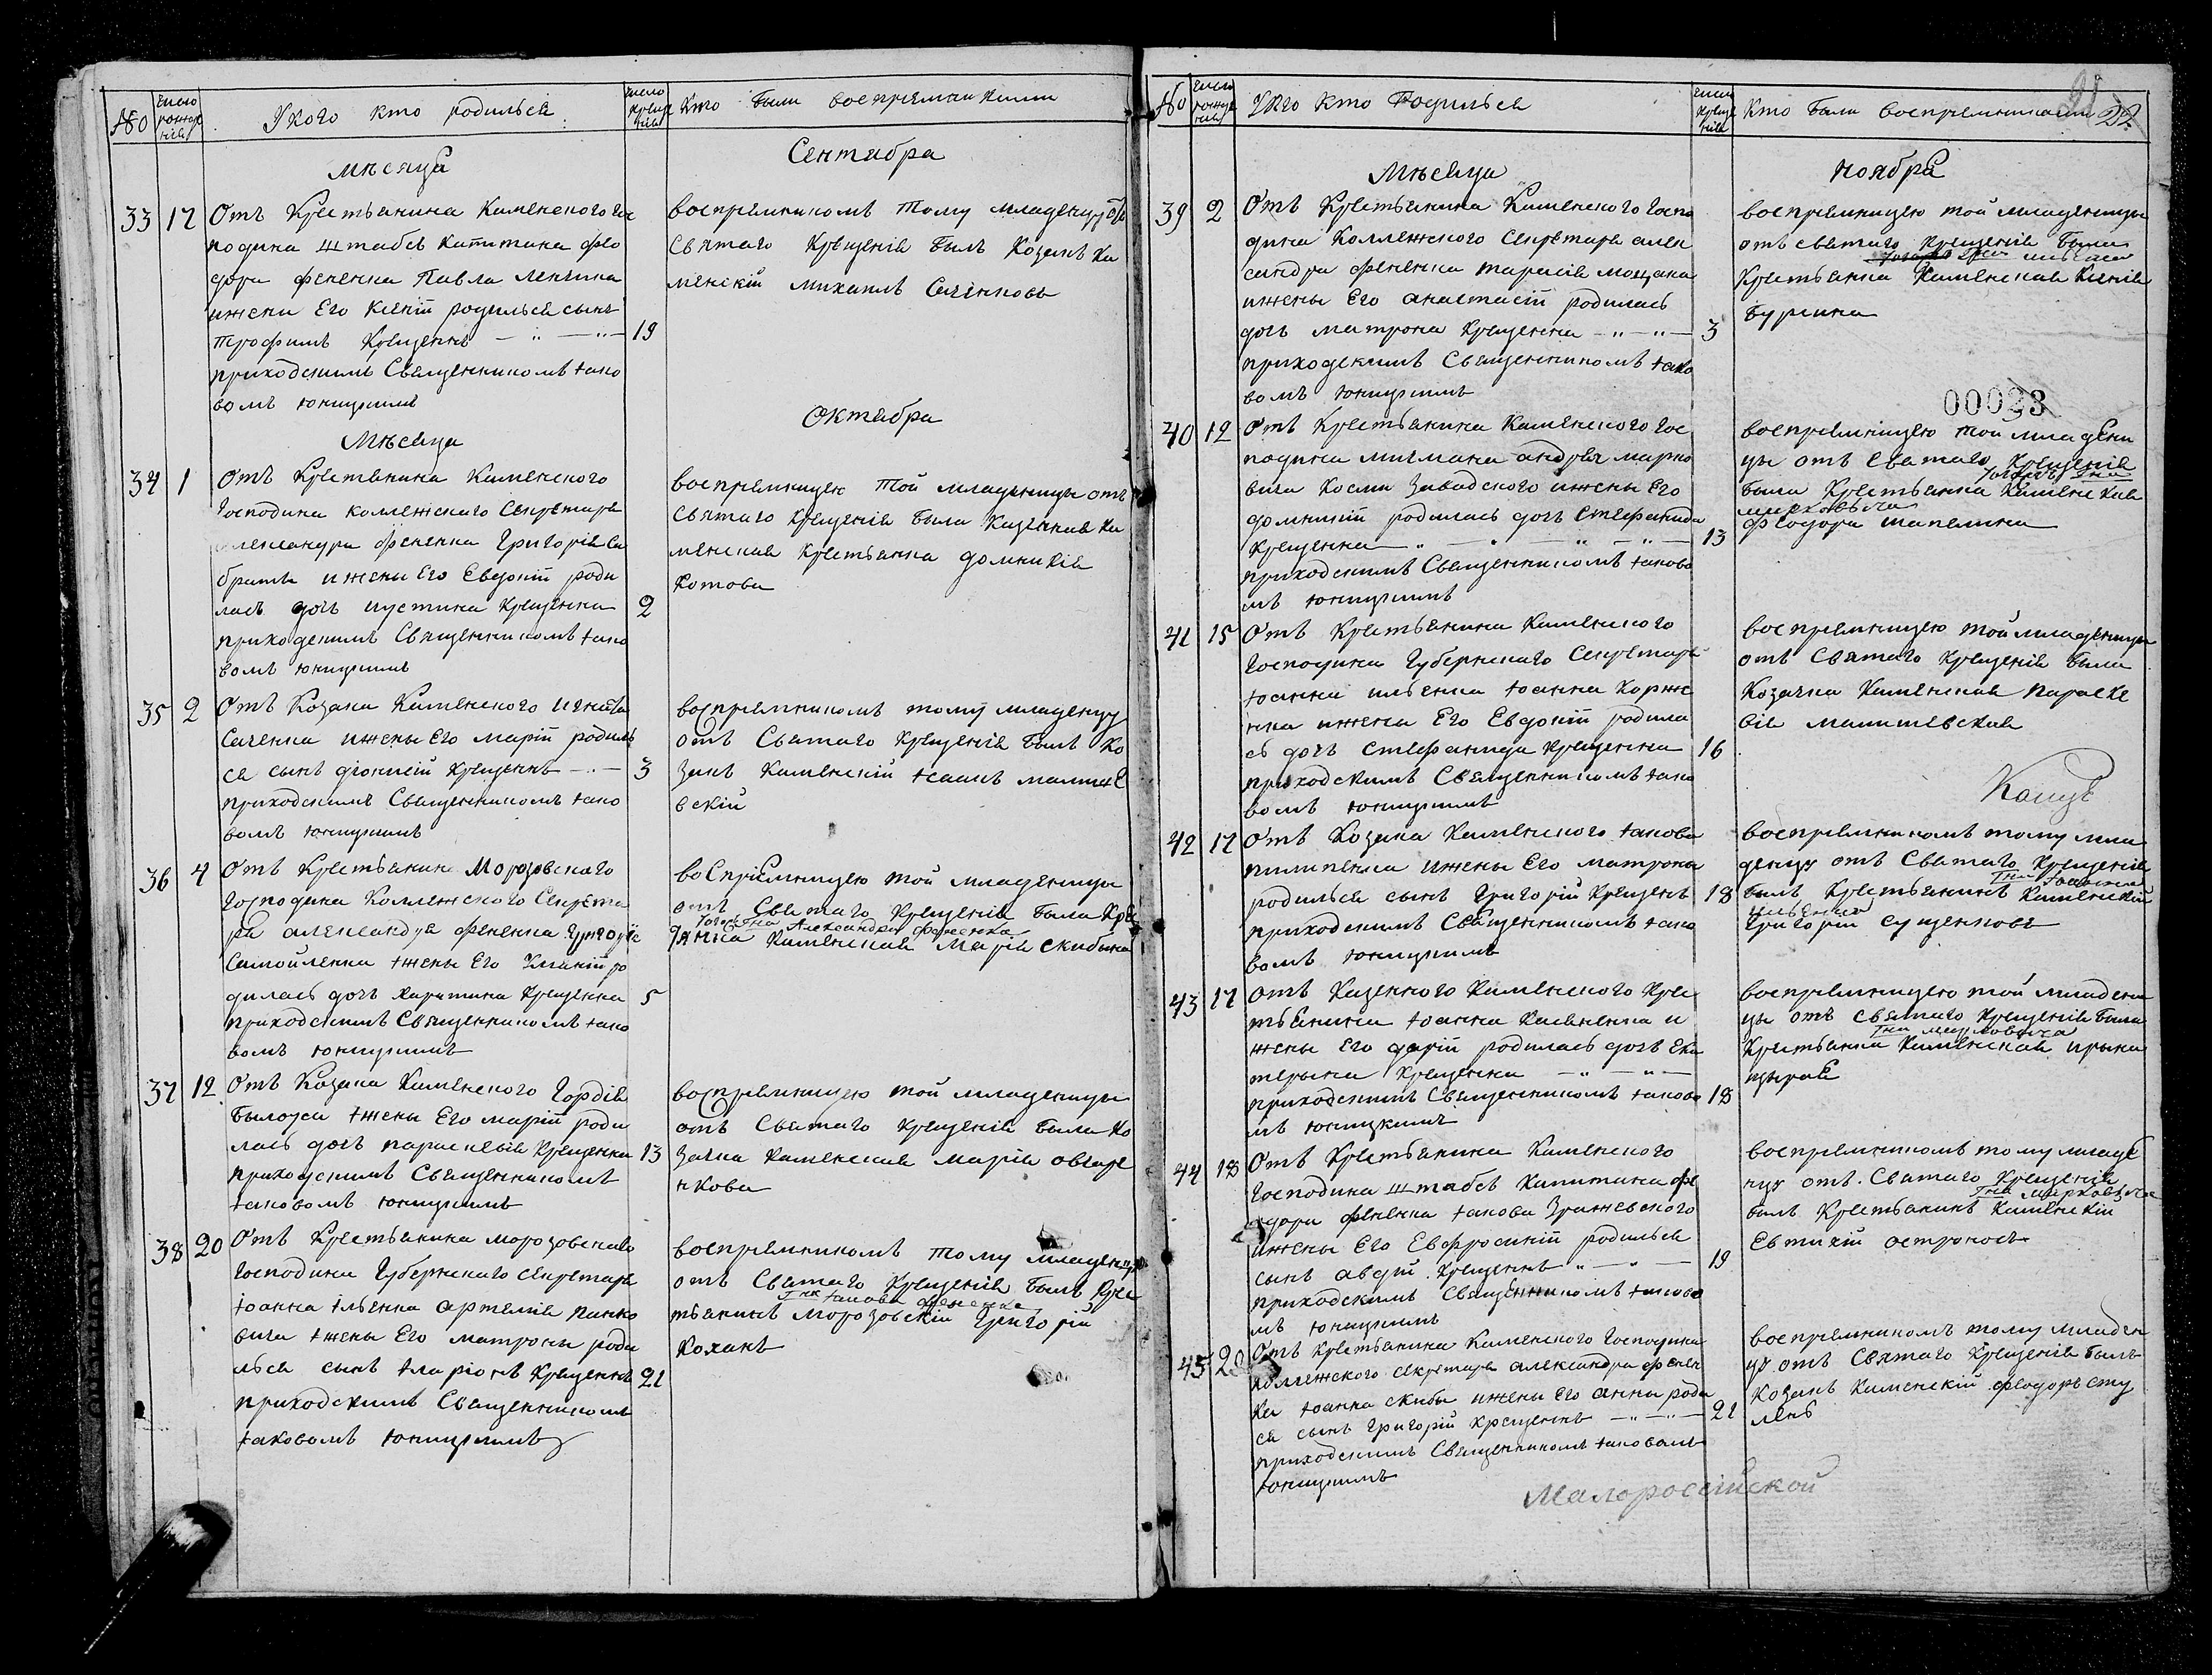 № число рожденія У кого кто родилься число крещенія Кто были воспріемниками
мѣсяца Сентября
33 17 Отъ Крестьянина Каменского Гос
подина штабсъ капитана Фео
дора Фененка Павла Ленчика
ижены Его Ксеніи родилься сынъ
Трофимъ Крещенъ 19
приходскимъ Священникомъ Іако
вомъ Юницкимъ
воспріемникомъ тому младенцу отъ
Святаго Крещенія былъ Козакъ Ка
менскій Михаилъ Саченковъ
Мѣсяца Октября
34 1 Отъ Крестьянина Каменского
Господина коллежского Секретаря
Александра Фененка Григорія Са
ижены Его Евдокіи роди
лась дочъ Иустина Крещенна 2
приходскимъ Священникомъ Іако
вомъ Юницкимъ
воспріемницею той младеницы отъ
Святаго Крещенія была Казенная Ка
менская Крестьянка Домникія
Котова
35 2 Отъ Козака Каменского Игната
Саченка ижены Его Маріи родил
ся сынъ Діонисій Крещенъ 3
приходскимъ Священникомъ Іако
вомъ Юницкимъ
воспріемникомъ тому младенцу
отъ Святаго Крещенія былъ Ко
закъ Каменскій Ісаакъ Малише
вскій
36 4 Отъ Крестьянина Морозовского
Господина Коллежского Секрета
ря Александра Фененка Григорія
Самойленка іжены Его Уліаніи ро
дилась дочъ Харитина Крещенна 5
приходскимъ Священникомъ Іако
вомъ Юницкимъ
воспріемницею той младеницы
отъ Святаго Крещенія была Кре
Гна Александра Фененка
Каменская Марія Скибина
37 12 Отъ Козака Каменского Гордія
Билоуса іжены Его Маріи роди
лась дочъ Параскевія Крещенна 13
приходскимъ Священникомъ
Іаковомъ Юницкимъ
воспріемницею той младеницы
отъ Святаго Крещенія была Ко
зачка Каменская Марія Овчаре
нкова
38 20 Отъ Крестьянина Морозовского
Господина Губернскаго Секретаря
Іоанна Ільенка Артемія Панко
вича іжены Его Матроны роди
лься сынъ Іларіонъ Крещенъ 21
приходскимъ Священникомъ
Іаковомъ Юницкимъ
воспріемникомъ тому младенцу
отъ Святаго Крещенія былъ Кре
Гна Іакова Фененка
тьянинъ Морозовскій Григорій
Коханъ
№ число рожденія У Кого Кто Родилься число крещенія Кто были воспріемниками 22
Мѣсяца Ноября
39 2 Отъ Крестьянина Каменского Госпо
дина Коллежского Секретаря Алек
сандра Фененка Тарасія Мощана
ижены Его Анастасіи родилась
дочъ Матрона Крещенна 3
приходскимъ Священникомъ Іако
вомъ Юницкимъ
воспріемницею той младеницы
отъ святаго Крещенія была
Крестьянка Каменская Ксенія
00023
40 12 Отъ Крестьянина Каменского Гос
подина Мичмана Андрея Марко
вича Космы Завадского ижены Его
Домникіи родилась дочъ Стефанида
Крещенна 13
приходскимъ Священникомъ Іаково
мъ Юницкимъ
воспріемницею той младени
цы отъ Святаго Крещенія
Гна
была Крестьянка Каменская
Марковича
Феодора Шапелина
41 15 Отъ Крестьянина Каменского
Господина Губернскаго Секретаря
Іоанна Ильенка Іоанна Корже
нка ижены Его Евдокіи родила
сь дочъ Стефанида Крещенна 16
приходскимъ Священникомъ Іако
вомъ Юницкимъ
воспріемницею той младеницы
отъ Святаго Крещенія была
Козачка Каменская Параске
вія Малишевская
42 17 Отъ Козака Каменского Іакова
Пилипенка ижены Его Матроны
родилься сынъ Григорій Крещенъ 18
приходскимъ Священникомъ Іако
вомъ Юницкимъ
воспріемникомъ тому мла
денцу отъ Святаго Крещенія
Гна Іоанна
былъ Крестьянинъ Каменскій
Ильенка
Григорій Сущенковъ
43 17 Отъ Казенного Каменского Кре
стьянина Іоанна Касяненка и
жены Его Даріи родилась дочъ Ека
терына Крещенна
приходскимъ Священникомъ Іаково 18
мъ Юницкимъ
воспріемницею той младени
цы отъ святаго Крещенія была
Гна Марковича
Крестьянка Каменская Ирына
44 18 Отъ Крестьянина Каменского
Господина штабсъ Капитана Фе
одора Фененка Іакова Зражевского
ижены Его Евфросиніи родилься
сынъ Авдій Крещенъ 19
приходскимъ Священникомъ Іаково
мъ Юницкимъ
воспріемникомъ тому младе
нцу отъ Святаго Крещенія
Гна Марковича
былъ Крестьянинъ Каменскій
Евтихій Остроносъ
45 20 Отъ Крестьянина Каменского Господина
Коллежского Секретаря Александра Фенен
ка Іоанна Скибы ижены Его Анны роди
ся сынъ Григорій Крещенъ 21
приходскимъ Священникомъ Іаковомъ
Юницкимъ
воспріемникомъ тому младен
цу отъ Святаго Крещенія былъ
Козакъ Каменскій Феодоръ Сту
ленъ
Малороссійской